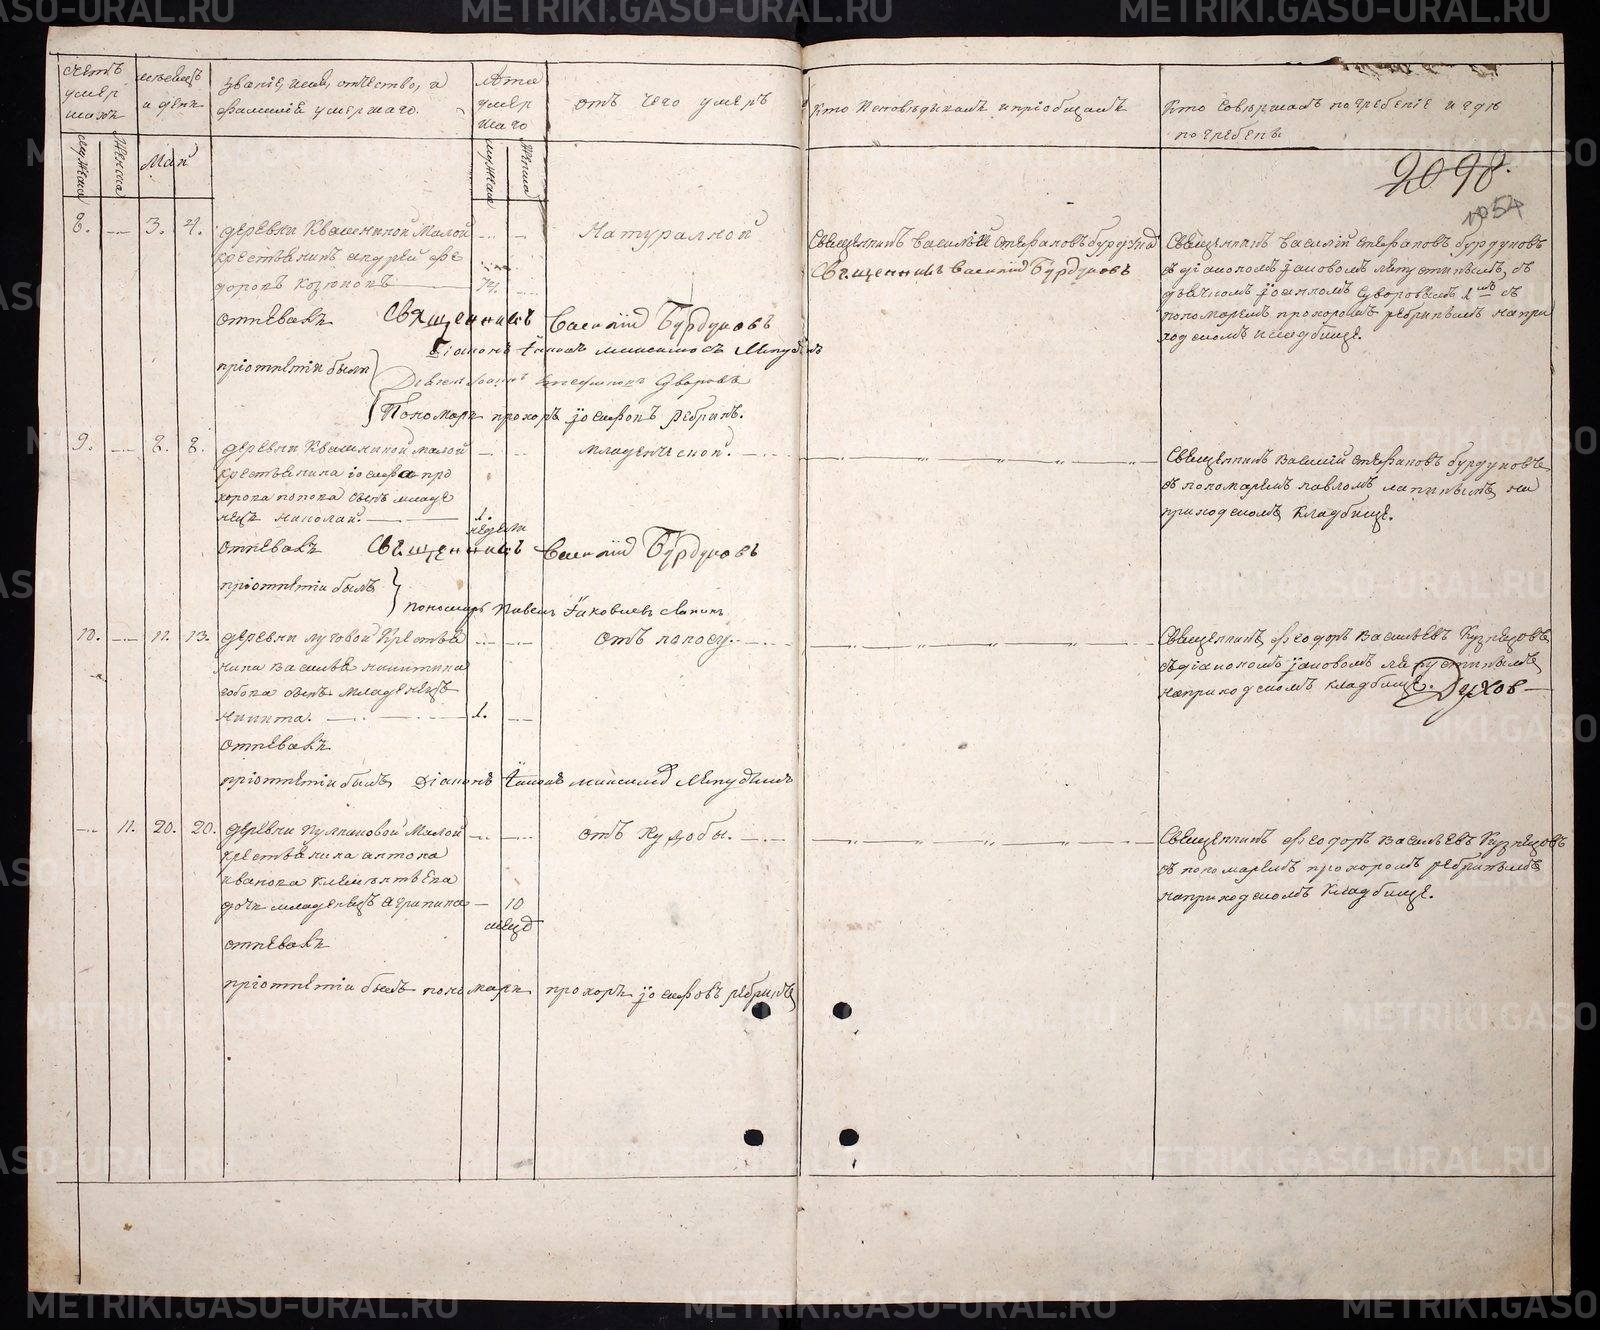 METRIKI.GASO-URAL.RU
счетъ умер шихъ
мѣсяцъ и день
званіе, имя, отчество, и фамиліе умершаго.
лѣта умер шаго
отъ чего умеръ
кто исповѣдывалъ и пріобщалъ
кто совершалъ погребеніе и гдѣ погребенъ
мужеска
женска
Май
мужеска
женска
2098.
№54
8. 3. 4. деревни Квашниной Малой
крестьянинъ андрей фе
доровъ козюковъ
отпѣвалъ
Натуралной
Священникъ василій стефановъ
Священникъ Василій Бурдуковъ
Священникъ василій стефановъ бурдуковъ
съ діакономъ іаковомъ
дьячкомъ іоанномъ Суворовымъ 1мъ съ
пономаремъ прохоромъ ребринымъ на при
ходскомъ кладбище.
Священникъ Василій Бурдуковъ
при отпѣтіи были
Діаконъ
Пономарь прохоръ іосифовъ ребринъ.
9. 8. 8. деревни Квашниной малой
крестьянина іосифа про
хорова попова сынъ младе
нецъ николай. 1.
младенческой.
Священникъ василій стефановъ бурдуковъ
съ пономаремъ павломъ лапинымъ на
приходскомъ кладбище.
отпѣвалъ Священникъ Василій Бурдуковъ
при отпѣтіи былъ
пономарь Павелъ Іаковлевъ Лапинъ
10. 11. 13. деревни луговой крестья
нина василья никитина
сынъ младенецъ
никита. 1.
отъ поносу.
Священникъ феодоръ васильевъ Кузнецовъ
съ діакономъ іаковомъ
на приходскомъ кладбище.
отпѣвалъ
при отпѣтіи былъ Діаконъ
11. 20. 20. деревни Малой
крестьянина антона
иванова клементьева
дочь младенецъ агрипина 10
мѣсц
отъ худобы.
Священникъ феодоръ васильевъ Кузнецовъ
съ пономаремъ прохоромъ ребринымъ
на приходскомъ кладбище.
отпѣвалъ
при отпѣтіи былъ пономарь прохоръ іосифовъ ребринъ